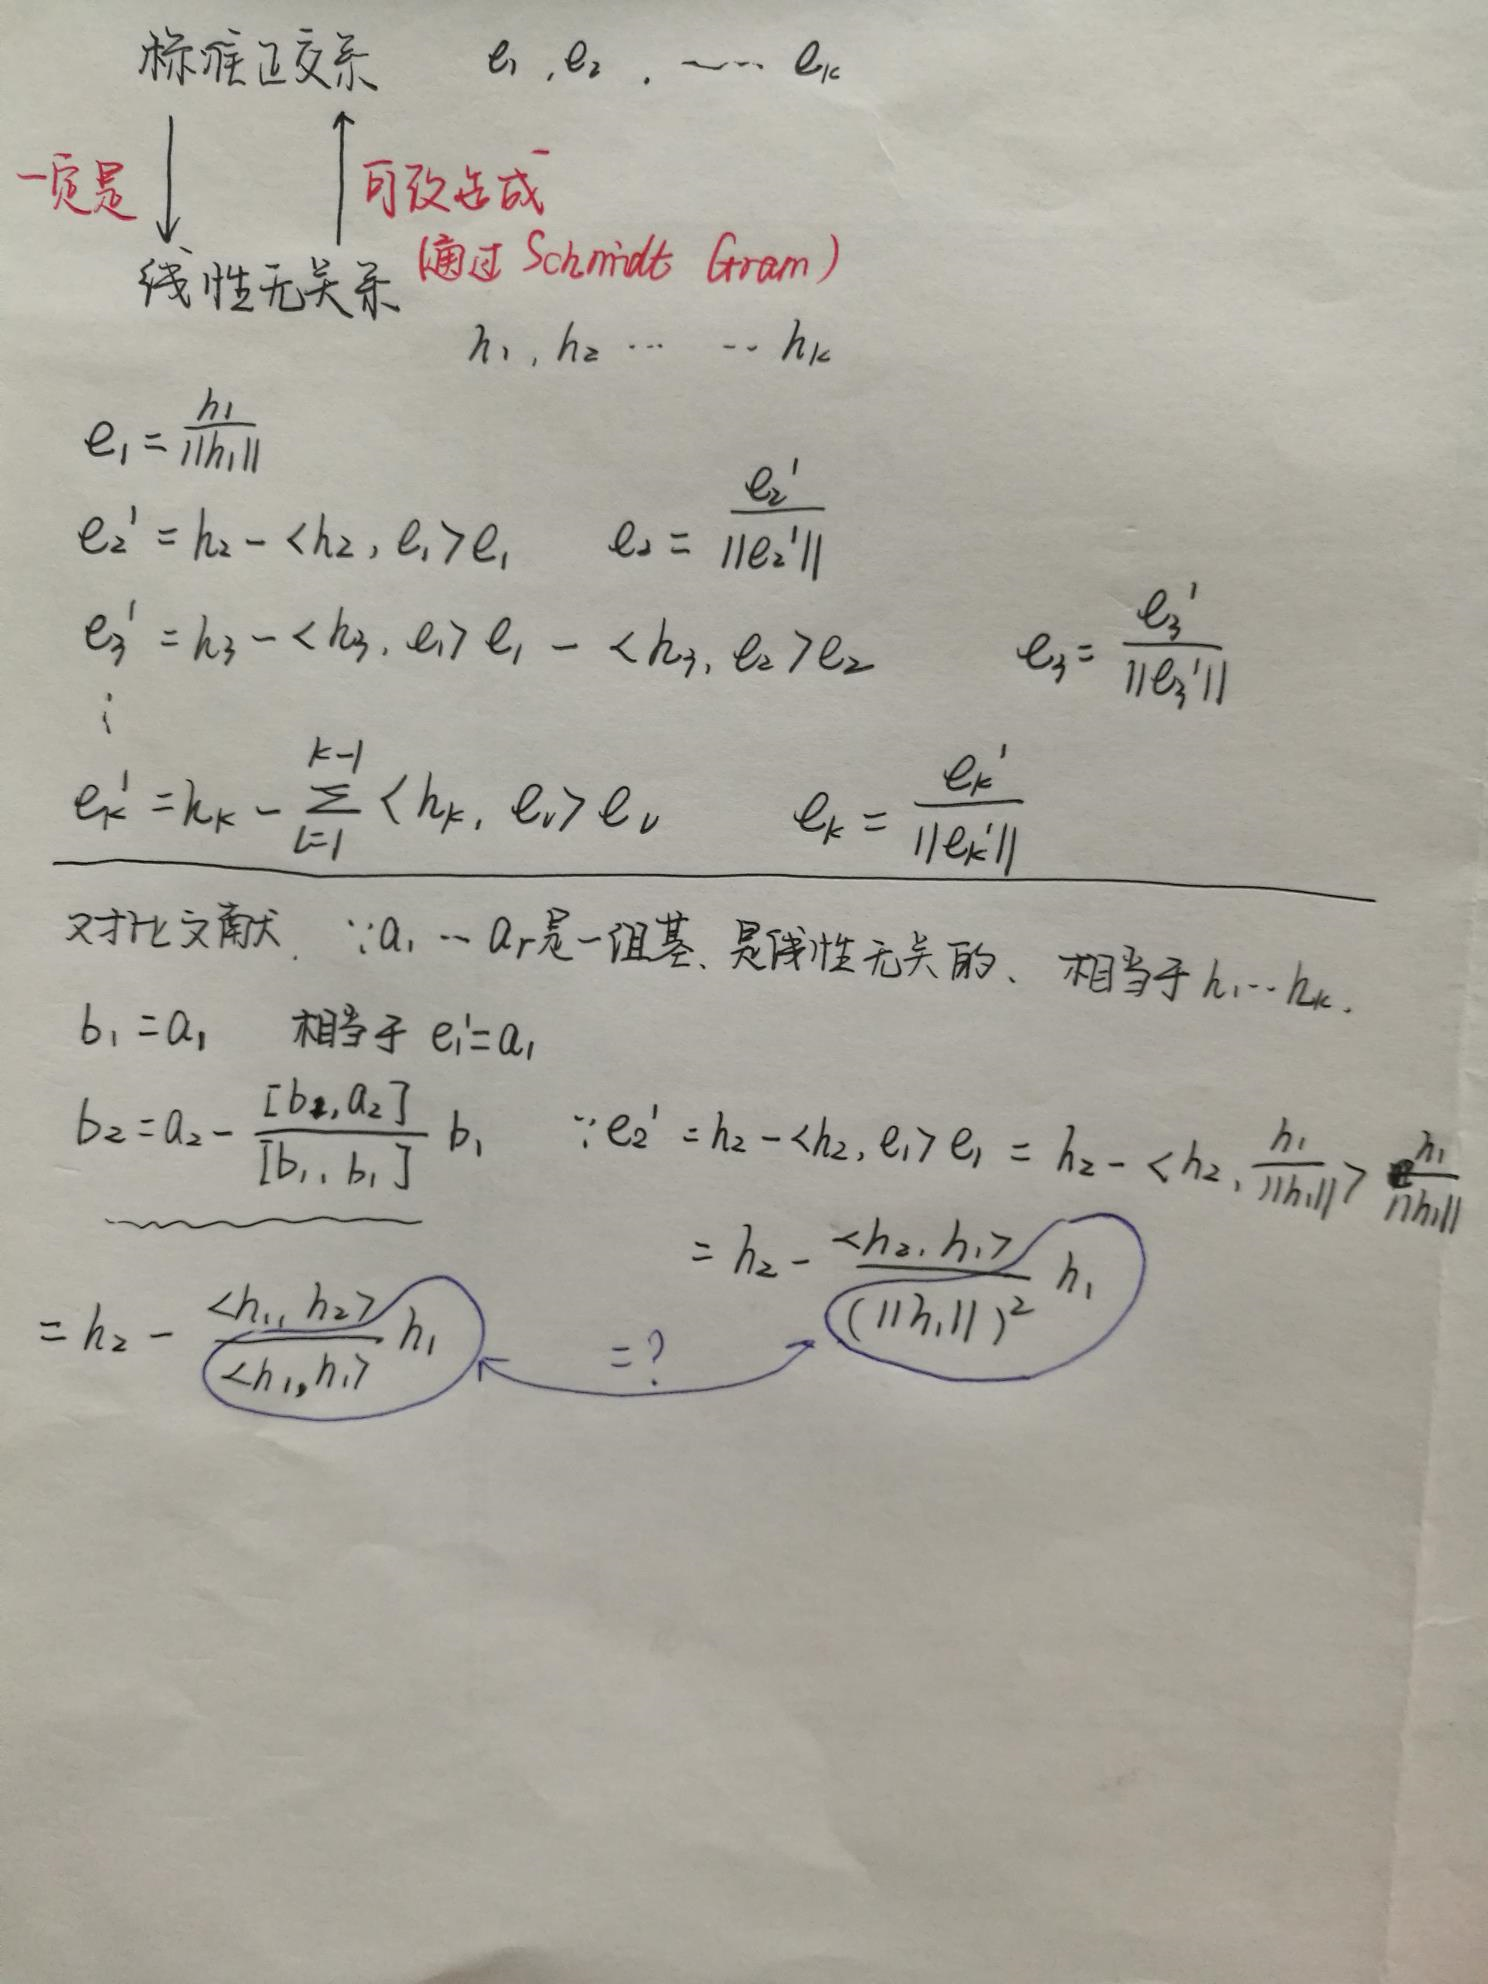 标准正交系 e₁, e₂, ~··· eₖ
一定是 可改造成
(通过 Schmidt Gram)
线性无关系
h₁, h₂ ··· ·· hₖ
e₁ = h₁/||h₁||
e₂' = h₂ - <h₂, e₁>e₁ e₂ = e₂'/||e₂'||
e₃' = h₃ - <h₃, e₁>e₁ - <h₃, e₂>e₂ e₃ = e₃'/||e₃'||
⋮
eₖ' = hₖ - Σᵢ₌₁ᵏ⁻¹ <hₖ, eᵢ>eᵢ eₖ = eₖ'/||eₖ'||
对比文献. ∵a₁ ··· aᵣ是一组基、是线性无关的、相当于h₁··hₖ.
b₁ = a₁ 相当于 e₁' = a₁
b₂ = a₂ - [b₁, a₂]/[b₁, b₁] b₁ ∵e₂' = h₂ - <h₂, e₁>e₁ = h₂ - <h₂, h₁/||h₁||> h₁/||h₁||
= h₂ - <h₂, h₁>/(||h₁||)² h₁
= h₂ - <h₁, h₂>/<h₁, h₁> h₁ =?